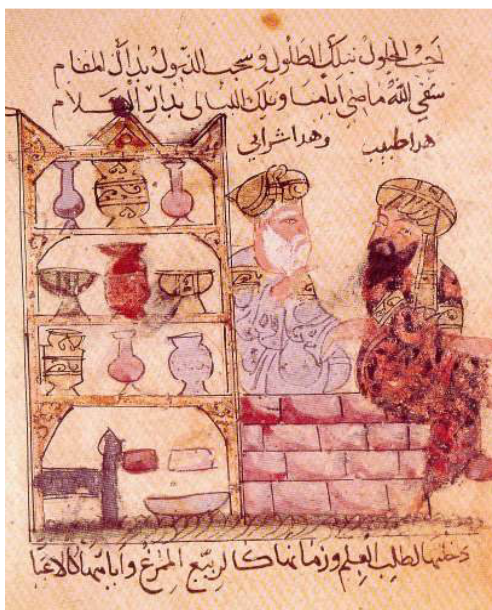 احب الحلول بتلك الطلول وسحب الذيول بذاك المقام
سقى الله ماضي ايامنا وتلك الليالى بدار السلام
هدا طبيب وهدا شرابي
دخلتها لطلب العلم وزمانها كالربيع الممرع وايامها